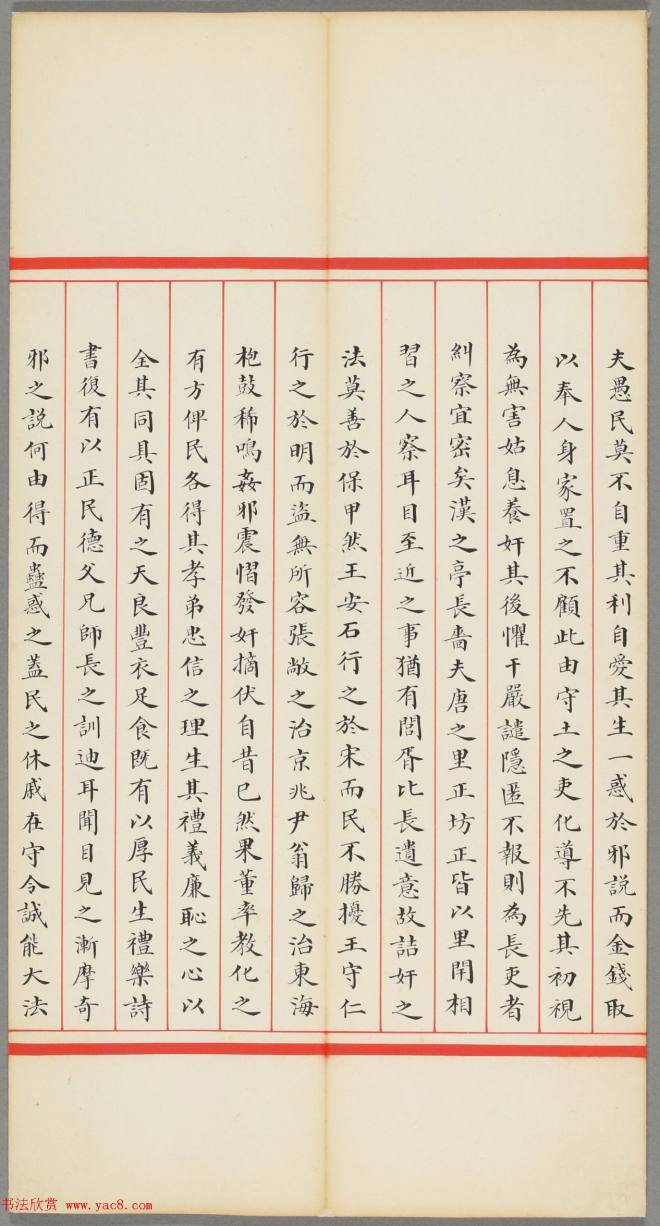 夫愚民莫不自重其利自愛其生一惑於邪說而金錢取
以奉人身家置之不顧此由守土之吏化導不先其初視
為無害姑息養奸其後懼干嚴譴隱匿不報則為長吏者
糾察宜密矣漢之亭長嗇夫唐之里正坊正皆以里閈相
習之人察耳目至近之事猶有閭胥比長遺意故詰奸之
法莫善於保甲然王安石行之於宋而民不勝擾王守仁
行之於明而盜無所容張敞之治京兆尹翁歸之治東海
枹鼓稀鳴姦邪震慴發奸摘伏自昔已然果董率教化之
有方俾民各得其孝弟忠信之理生其禮義廉恥之心以
全其同具固有之天良豐衣足食既有以厚民生禮樂詩
書復有以正民德父兄師長之訓迪耳聞目見之漸摩奇
邪之說何由得而蠱惑之蓋民之休戚在守令誠能大法
书法欣赏 www.yac8.com